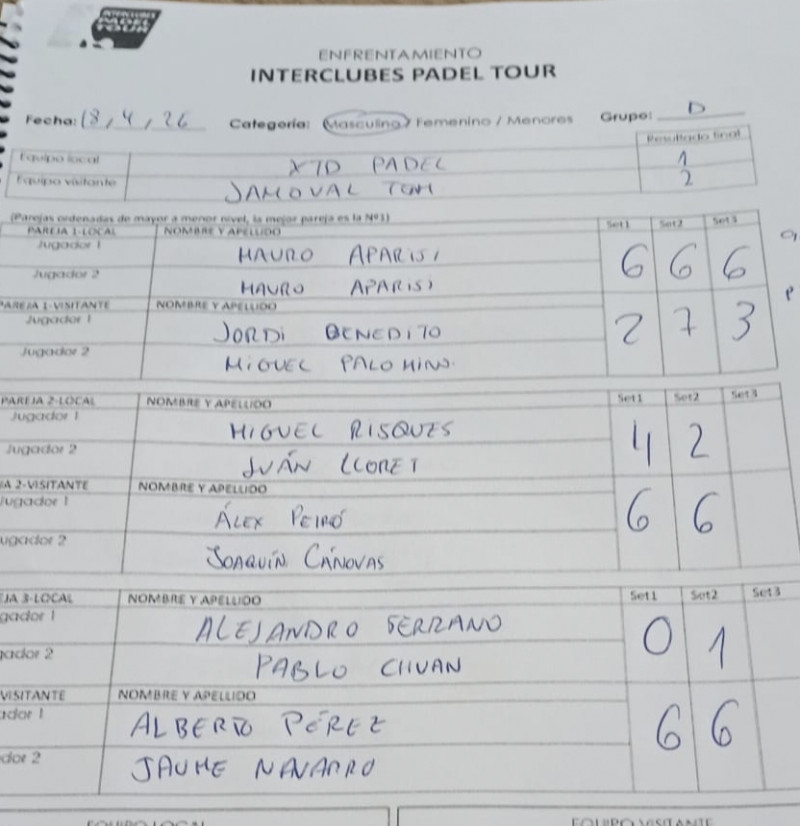 INTERCLUBES
PADEL
TOUR
ENFRENTAMIENTO
INTERCLUBES PADEL TOUR
Fecha: 18, 4, 26 Categoria: Masculino / Femenino / Menores Grupo: D
Resultado final
Equipo local XTD PADEL 1
Equipo visitante 2
(Parejas ordenadas de mayor a menor nivel, la mejor pareja es la Nº1)
PAREJA 1-LOCAL NOMBRE Y APELLIDO Set1 Set2 Set3
Jugador 1 MAURO APARISI
Jugador 2 MAURO APARISI
6 6 6
PAREJA 1-VISITANTE NOMBRE Y APELLIDO
Jugador 1 JORDI BENEDITO
Jugador 2 MIGUEL PALOMINO
2 7 3
PAREJA 2-LOCAL NOMBRE Y APELLIDO Set1 Set2 Set3
Jugador 1 MIGUEL RISQUES
Jugador 2 JUÁN LLORET
4 2
JA 2-VISITANTE NOMBRE Y APELLIDO
Jugador 1 ÁLEX PEIRÓ
ugador 2 JOAQUÍN CÁNOVAS
6 6
EJA 3-LOCAL NOMBRE Y APELLIDO Set1 Set2 Set3
gador 1 ALEJANDRO SERRANO
gador 2 PABLO
0 1
VISITANTE NOMBRE Y APELLIDO
ador 1 ALBERTO PÉREZ
dor 2 JAUME NAVARRO
6 6
EQUIPO LOCAL EQUIPO VISITANTE